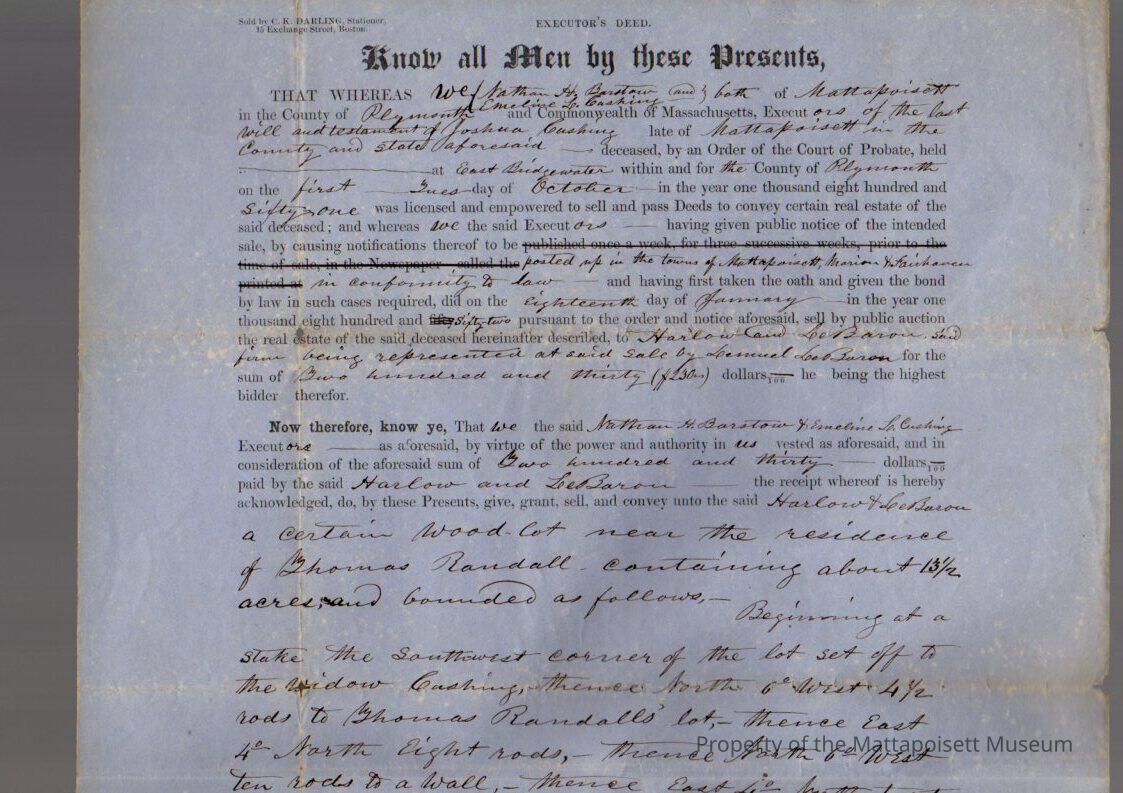 Sold by C. K. DARLING, Stationer,
15 Exchange Street, Boston.
EXECUTOR'S DEED.
Know all Men by these Presents,
THAT WHEREAS We { Nathan H. Barstow and } both of Mattapoisett
Emeline L. Cushing
in the County of Plymouth and Commonwealth of Massachusetts, Executors of the last
will and testament of Joshua Cushing late of Mattapoisett in the
County and State aforesaid — deceased, by an Order of the Court of Probate, held
at East Bridgewater within and for the County of Plymouth
on the first Tues-day of October in the year one thousand eight hundred and
Sixty one was licensed and empowered to sell and pass Deeds to convey certain real estate of the
said deceased; and whereas we the said Executors — having given public notice of the intended
sale, by causing notifications thereof to be published once a week, for three successive weeks, prior to the
time of sale, in the Newspaper called the posted up in the towns of Mattapoisett, Marion & Fairhaven
printed at in conformity to law — and having first taken the oath and given the bond
by law in such cases required, did on the eighteenth day of January — in the year one
thousand eight hundred and fifty Sixty two pursuant to the order and notice aforesaid, sell by public auction
the real estate of the said deceased hereinafter described, to Harlow and LeBaron, said
firm being represented at said Sale by Lemuel LeBaron for the
sum of Two hundred and thirty ($230) dollars, 100 he being the highest
bidder therefor.
Now therefore, know ye, That we the said Nathan H. Barstow & Emeline L. Cushing
Executors — as aforesaid, by virtue of the power and authority in us vested as aforesaid, and in
consideration of the aforesaid sum of Two hundred and thirty — dollars, 100
paid by the said Harlow and LeBaron — the receipt whereof is hereby
acknowledged, do, by these Presents, give, grant, sell, and convey unto the said Harlow & LeBaron
a certain wood-lot near the residence
of Thomas Randall - containing about 13½
acres, and bounded as follows, —
Beginning at a
stake the Southwest corner of the lot set off to
the widow Cushing, thence North 6° West 4½
rods to Thomas Randalls' lot, — thence East
4° North Eight rods, — thence North 6° West
ten rods to a Wall, — thence East 4°
Property of the Mattapoisett Museum